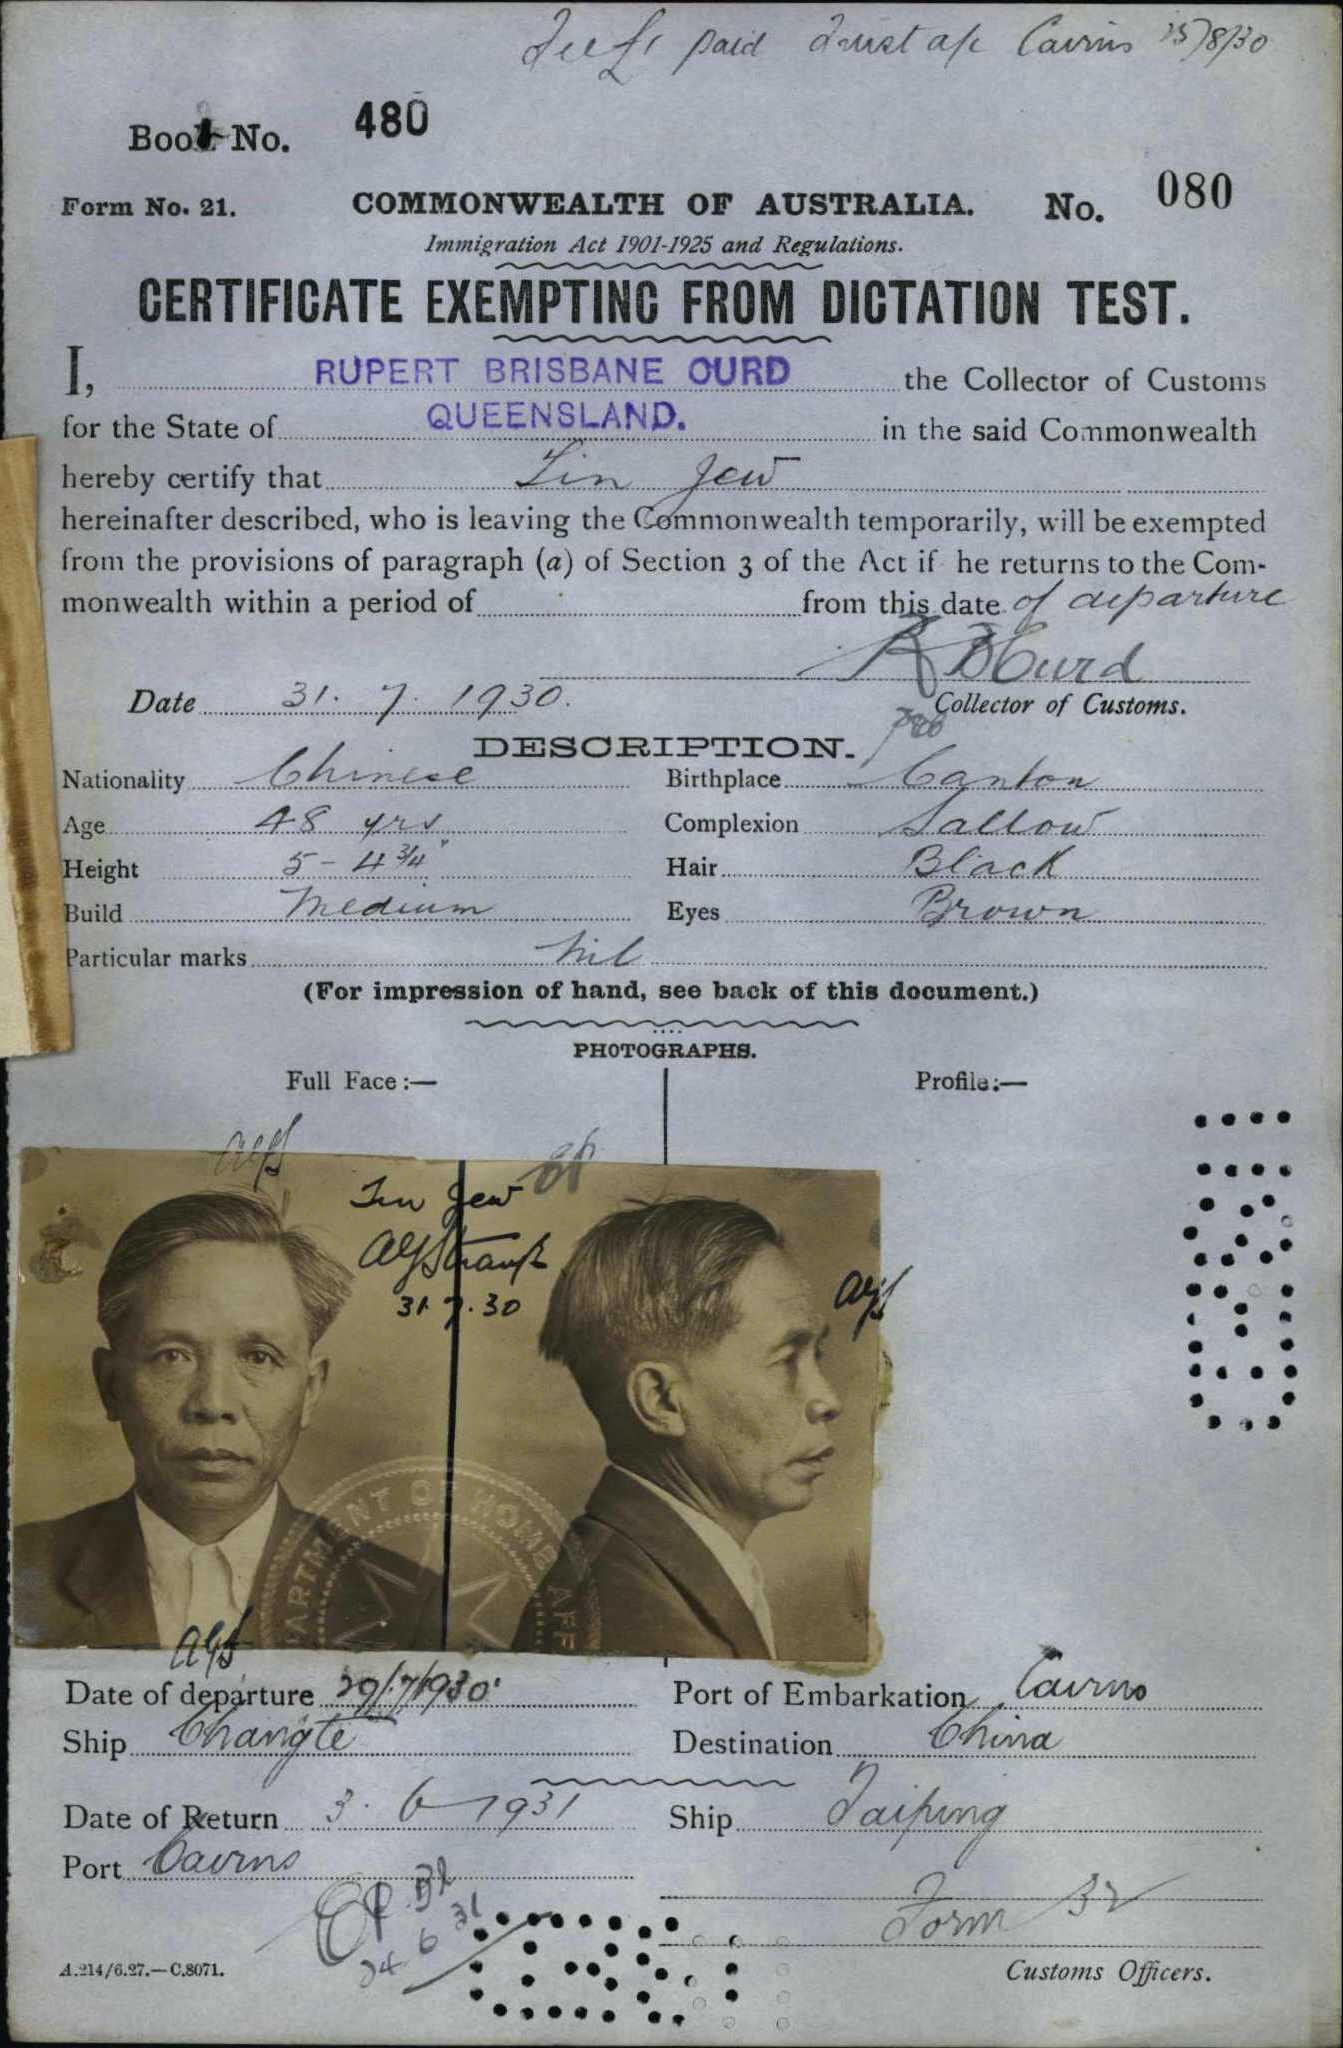 Fee £1 paid Trust a/c Cairns 25/8/30
Book No. 480
Form No. 21. COMMONWEALTH OF AUSTRALIA. No. 080
Immigration Act 1901-1925 and Regulations.
CERTIFICATE EXEMPTING FROM DICTATION TEST.
I, RUPERT BRISBANE CURD the Collector of Customs
for the State of QUEENSLAND. in the said Commonwealth
hereby certify that Lin Jew
hereinafter described, who is leaving the Commonwealth temporarily, will be exempted
from the provisions of paragraph (a) of Section 3 of the Act if he returns to the Com-
monwealth within a period of from this date of departure
R B Curd
Date 31. 7. 1930. Collector of Customs.
DESCRIPTION.
Nationality Chinese Birthplace Canton
Age 48 yrs Complexion Sallow
Height 5 - 4 3/4" Hair Black
Build Medium Eyes Brown
Particular marks nil
(For impression of hand, see back of this document.)
PHOTOGRAPHS.
Full Face:— Profile:—
Jew
31.7.30
DEPARTMENT OF HOME AFF
Date of departure 29/7/1930 Port of Embarkation Cairns
Ship Changte Destination China
Date of Return 3. 6. 1931 Ship Taiping
Port Cairns
Form 32
24 6 31
A.214/6.27.—C.8071. Customs Officers.